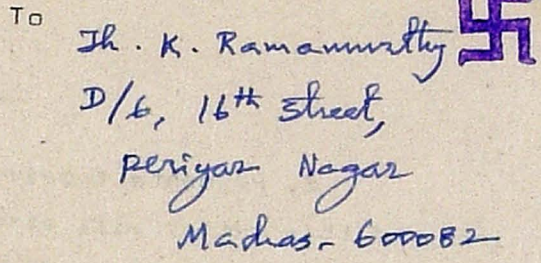 To
Th. K. Ramamurthy
D/6, 16th Street,
Periyar Nagar
Madras- 600082